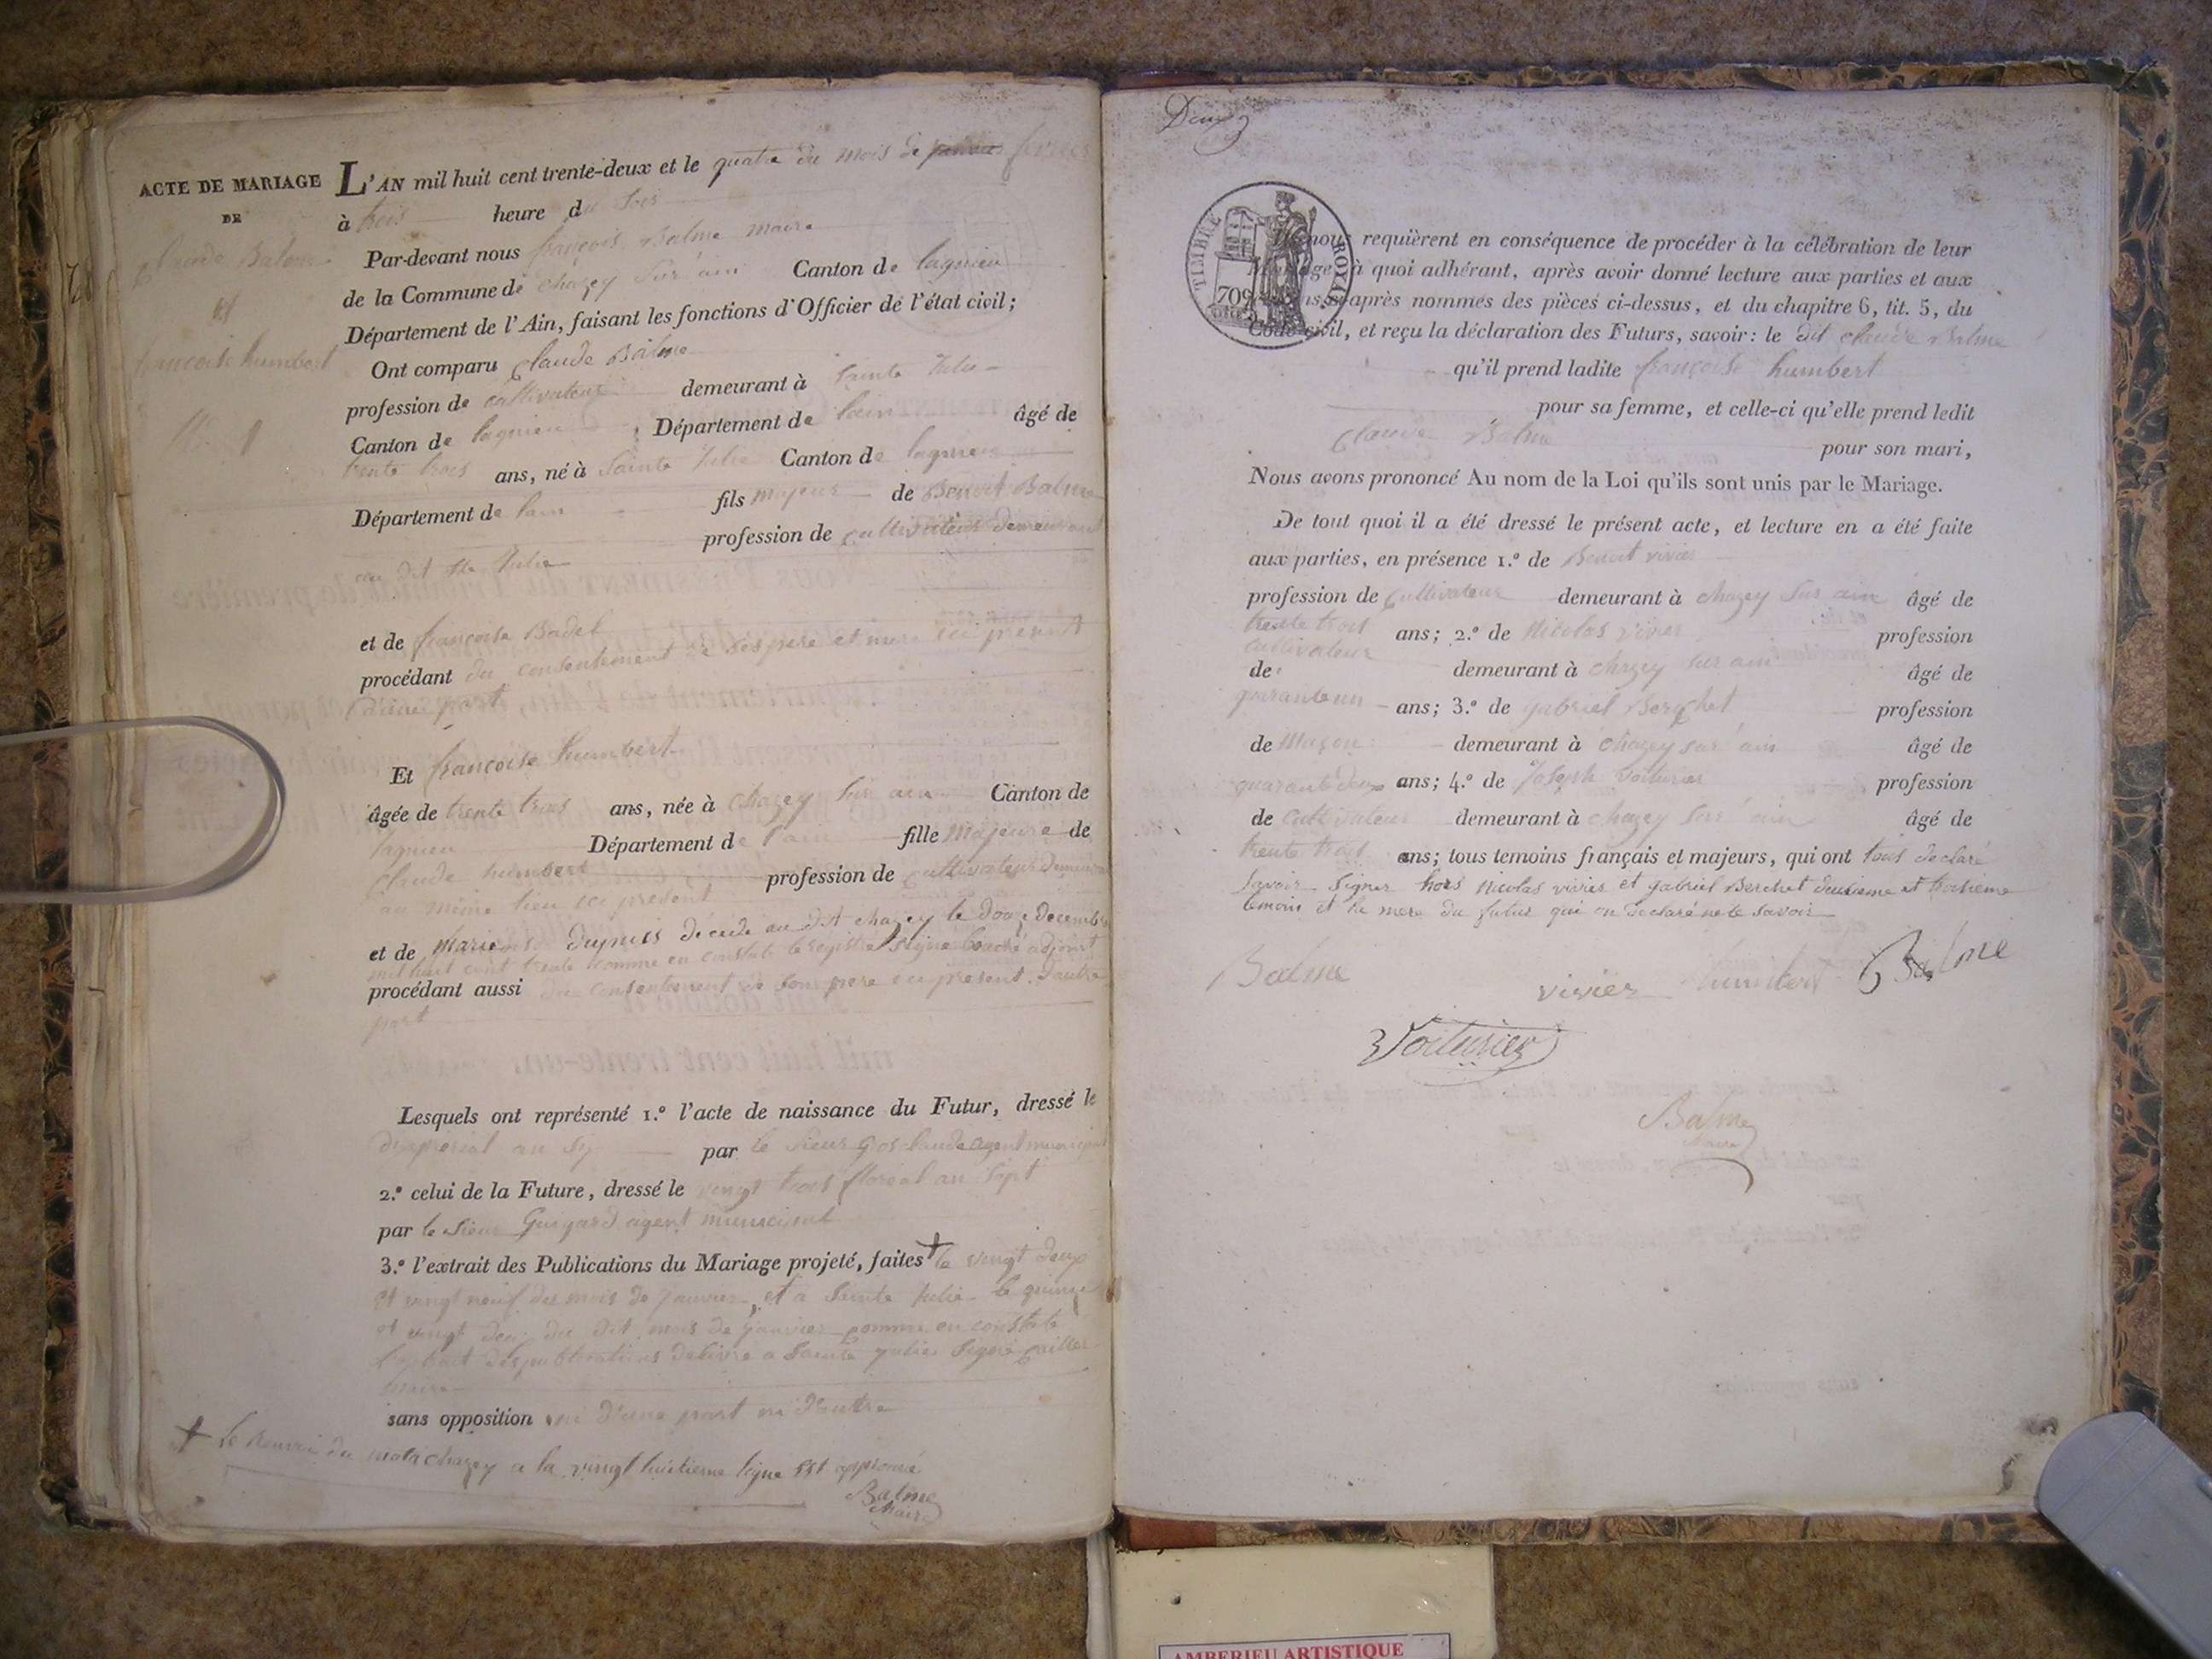 ACTE DE MARIAGE
DE
Claude Balme
et
françoise humbert
L'AN mil huit cent trente-deux et le quatre du mois de janvier fevrier
à trois heure du soir
Par-devant nous françois Balme maire
de la Commune de chazey sur ain Canton de lagnieu
Département de l'Ain, faisant les fonctions d'Officier de l'état civil;
Ont comparu Claude Balme
profession de cultivateur demeurant à Sainte Julie
Canton de lagnieu Département de lain âgé de
trente trois ans, né à Sainte Julie Canton de lagnieu
Département de lain fils majeur de Benoit Balme
profession de cultivateur demeurant
au dit Ste Julie
et de françoise Badel
procédant du consentement de ses pere et mere ici present
d'une part
Et françoise humbert
âgée de trente trois ans, née à chazey sur ain Canton de
lagnieu Département de l'ain fille majeure de
Claude humbert profession de cultivateur demeurant
au même lieu ici présent
et de Marie dupuis décédé au dit chazey le douze decembre
mil huit cent trente comme en constate le registre signé adjoint
procédant aussi du consentement de son pere ici present d'autre
part
Lesquels ont représenté 1.º l'acte de naissance du Futur, dressé le
prairial an par le sieur agent municipal
2.º celui de la Future, dressé le vingt trois floréal an Sept
par le Sieur Guigard agent municipal
3.º l'extrait des Publications du Mariage projeté, faites + le vingt deux
et vingt neuf du mois de janvier, et a Sainte Julie le quinze
et vingt deux du dit mois de janvier comme en constate
l'extrait des publications delivré a Sainte julie signé
maire
sans opposition ni d'une part ni d'autre
+ le renvoi du mot a chazey a la vingt huitieme ligne est approuvé
Balme
Maire
Deux
TIMBRE ROYAL
70c
nous requièrent en conséquence de procéder à la célébration de leur
mariage, à quoi adhérant, après avoir donné lecture aux parties et aux
témoins ci-après nommés des pièces ci-dessus, et du chapitre 6, tit. 5, du
Code civil, et reçu la déclaration des Futurs, savoir: le dit Claude Balme
qu'il prend ladite françoise humbert
pour sa femme, et celle-ci qu'elle prend ledit
Claude Balme pour son mari,
Nous avons prononcé Au nom de la Loi qu'ils sont unis par le Mariage.
De tout quoi il a été dressé le présent acte, et lecture en a été faite
aux parties, en présence 1.º de Benoit vivier
profession de Cultivateur demeurant à chazey sur ain âgé de
trente trois ans; 2.º de Nicolas vivier profession
de cultivateur demeurant à chazey sur ain âgé de
quarante un ans; 3.º de gabriel Berchet profession
de Maçon demeurant à chazey sur ain âgé de
quarante deux ans; 4.º de Joseph Voiturier profession
de Cultivateur demeurant à chazey sur ain âgé de
trente trois ans; tous temoins français et majeurs, qui ont tous declaré
savoir signer hors Nicolas vivier et gabriel Berchet deuxieme et troisieme
temoin et la mere du futur qui on declaré ne le savoir
Balme vivier humbert Balme
Voiturier
Balme
Maire
AMBERIEU ARTISTIQUE